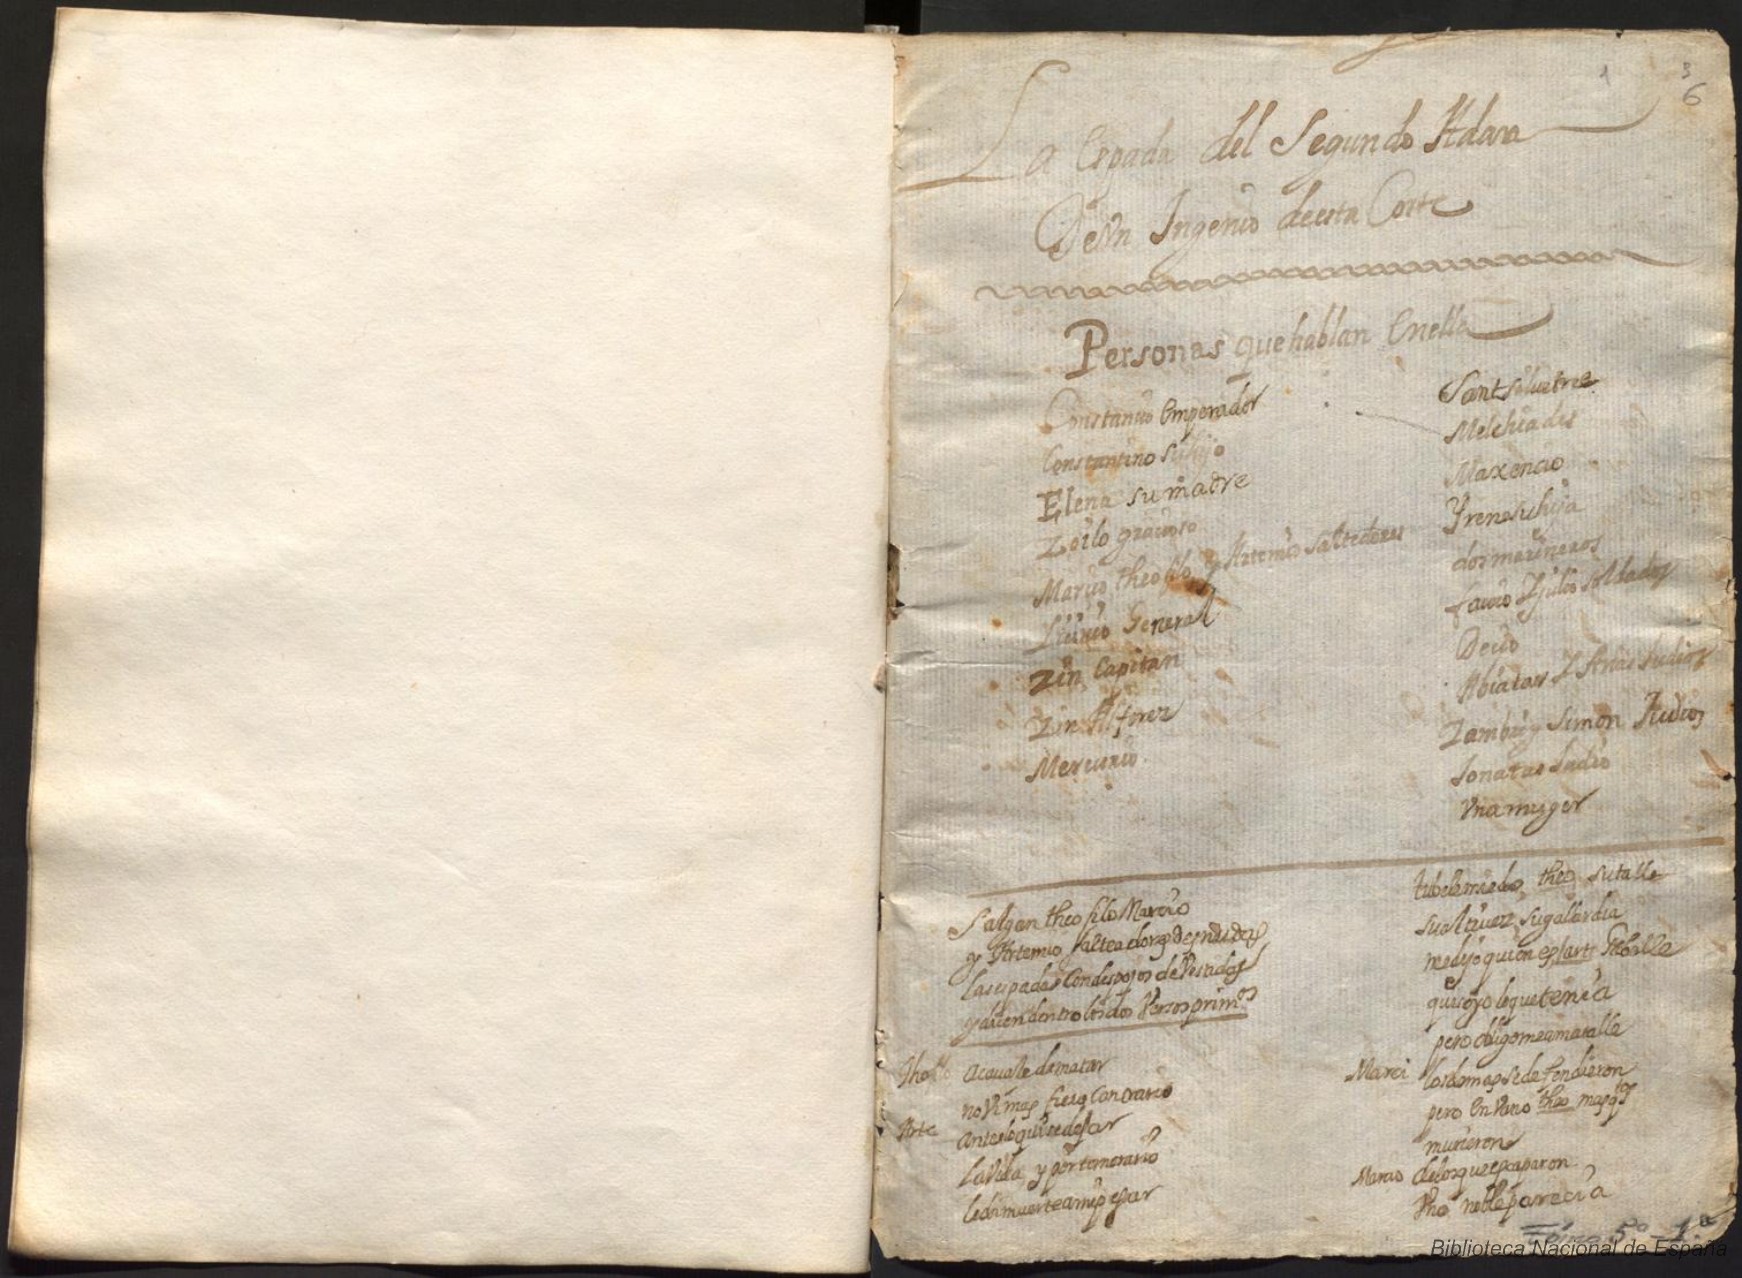 1 3
6
La Espada del Segundo Adan
De Vn Ingenio de esta Corte
Personas que hablan Enella
Constancio Emperador
Constantino su hijo
Elena su madre
Zoilo gracioso
Marcio theofilo y Artemio salteadores
Licinio General
Vn Capitan
Vn Alferez
Mercurio
Sant silvestre
Melchiades
Maxencio
Yrene su hija
dos marineros
favio Y Julio soldados
Decio
Abiatar Y Judios
Zambri y Simon Judios
Jonatas Judio
Vna muger
Salgan theofilo Marcio
y Artemio salteadores desnudas
las espadas Con despojos de Vestidos
y dicen dentro los dos Versos prim.os
Theo acavale de matar
no Vi mas fiero Contrario
Arte antes le quise dejar
la Vida y por temerario
le di muerte a mi pesar
tubele miedo theo su talle
su Altivez su gallardia
me dijo quien es Arte
quise yo lo que tenia
pero obligome a matalle
Marci los demas se defendieron
pero En Vano theo mas
murieron
Marcio de los que escaparon
Vno noble parecia
Biblioteca Nacional de España